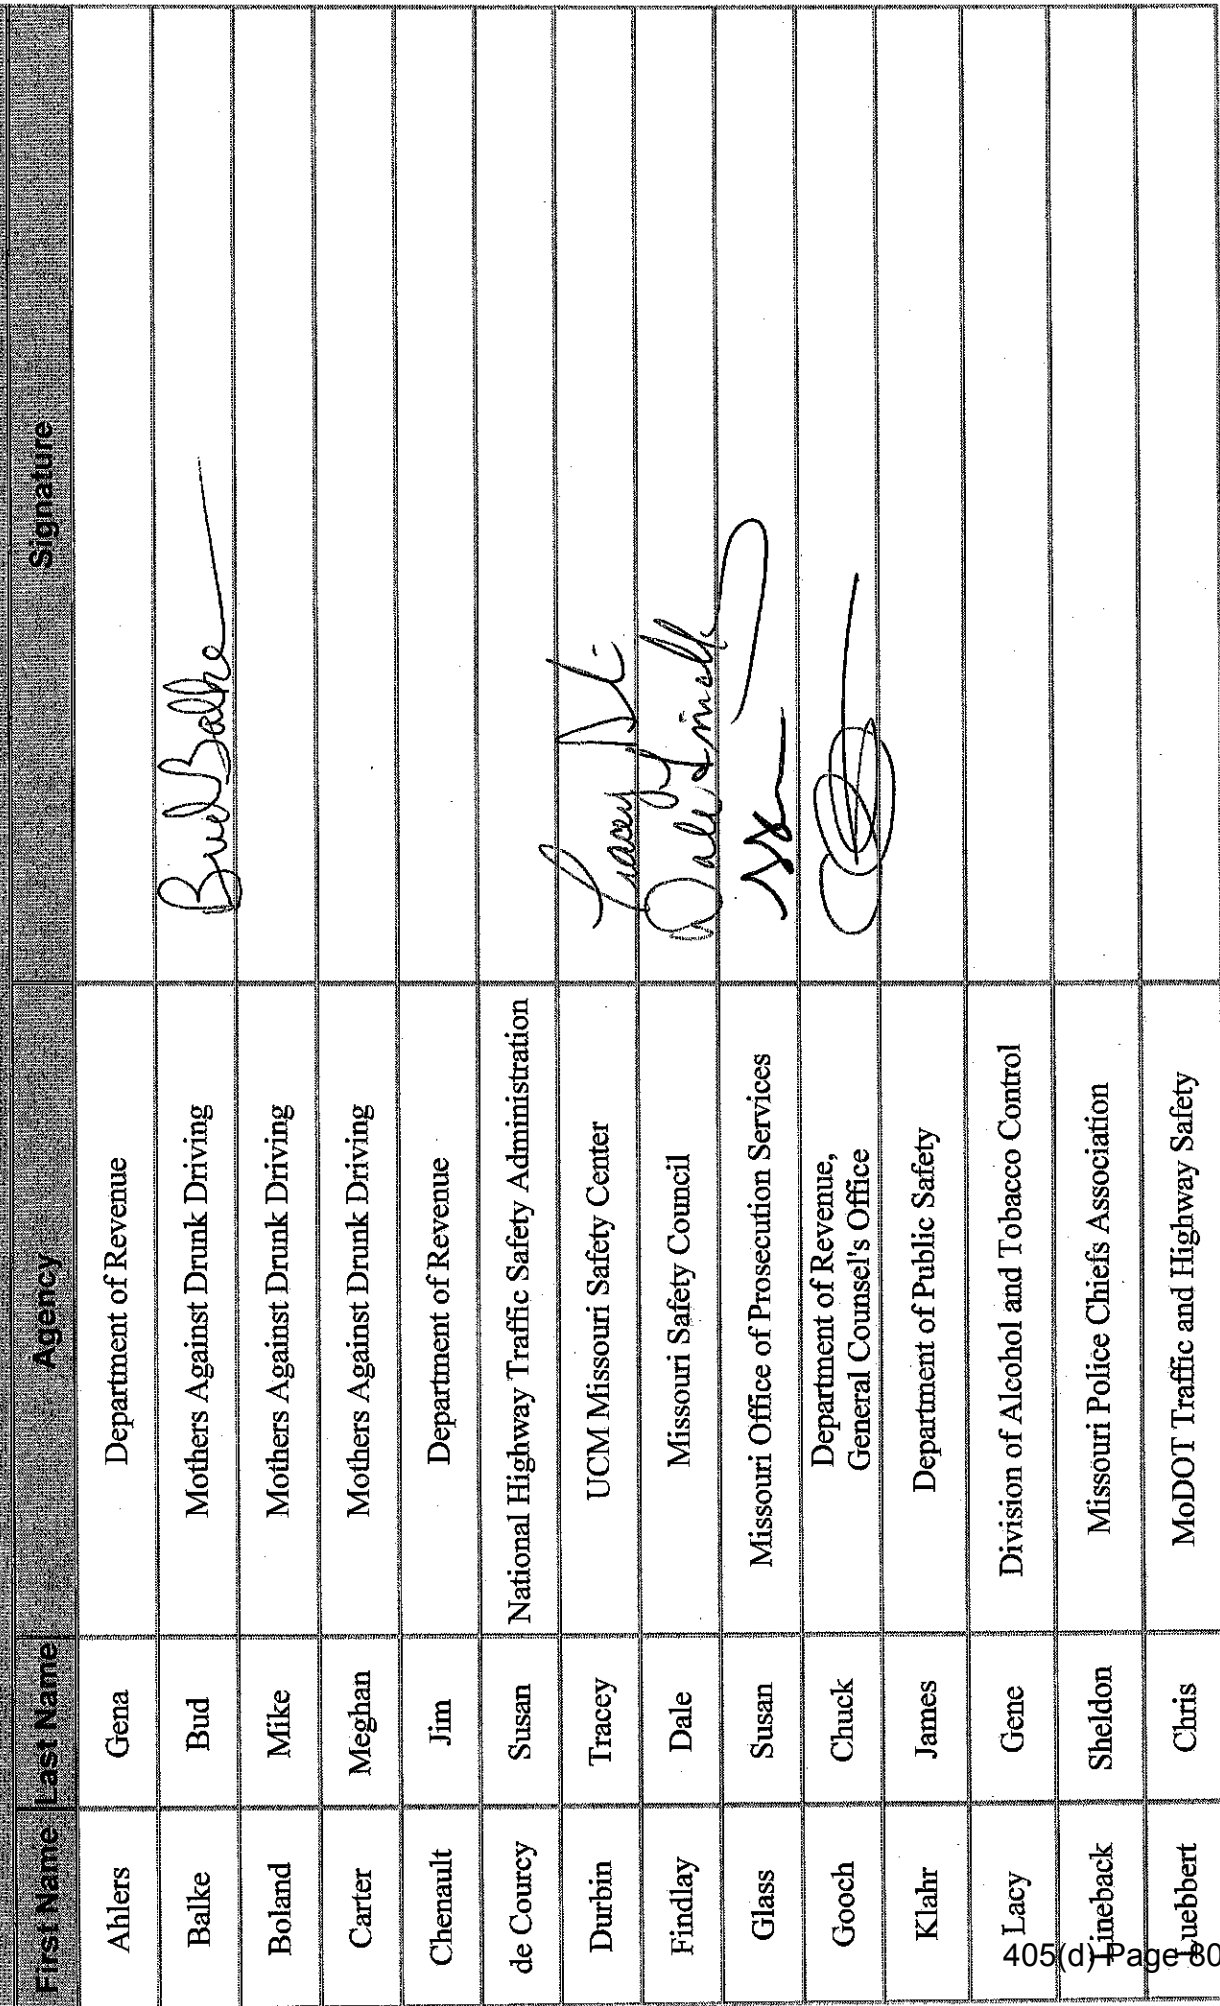 First Name Last Name Agency Signature
Ahlers Gena Department of Revenue
Balke Bud Mothers Against Drunk Driving Bud Balke
Boland Mike Mothers Against Drunk Driving
Carter Meghan Mothers Against Drunk Driving
Chenault Jim Department of Revenue
de Courcy Susan National Highway Traffic Safety Administration
Durbin Tracey UCM Missouri Safety Center Tracey
Findlay Dale Missouri Safety Council Dale Findlay
Glass Susan Missouri Office of Prosecution Services
Gooch Chuck Department of Revenue,
General Counsel's Office
Klahr James Department of Public Safety
Lacy Gene Division of Alcohol and Tobacco Control
Lineback Sheldon Missouri Police Chiefs Association
Luebbert Chris MoDOT Traffic and Highway Safety
405(d) Page 80